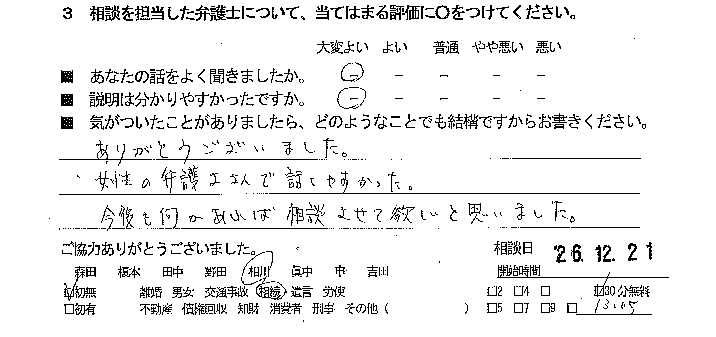 3 相談を担当した弁護士について、当てはまる評価に〇をつけてください。
大変よい よい 普通 やや悪い 悪い
■ あなたの話をよく聞きましたか。 － － － － －
■ 説明は分かりやすかったですか。 － － － － －
■ 気がついたことがありましたら、どのようなことでも結構ですからお書きください。
ありがとうございました。
女性の弁護士さんで話しやすかった。
今後も何かあれば相談させて欲しいと思いました。
ご協力ありがとうございました。 相談日 '26.12.21
森田 榎本 田中 野田 相川 眞中 申 吉田 開始時間
☑初無 離婚 男女 交通事故 相続 遺言 労使 □2 □4 □ ☑30分無料
□初有 不動産 債権回収 知財 消費者 刑事 その他( ) □5 □7 □9 □ 13:05